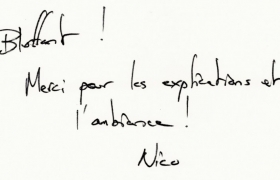 Bluffant !
Merci pour les explications et
l'ambiance !
Nico